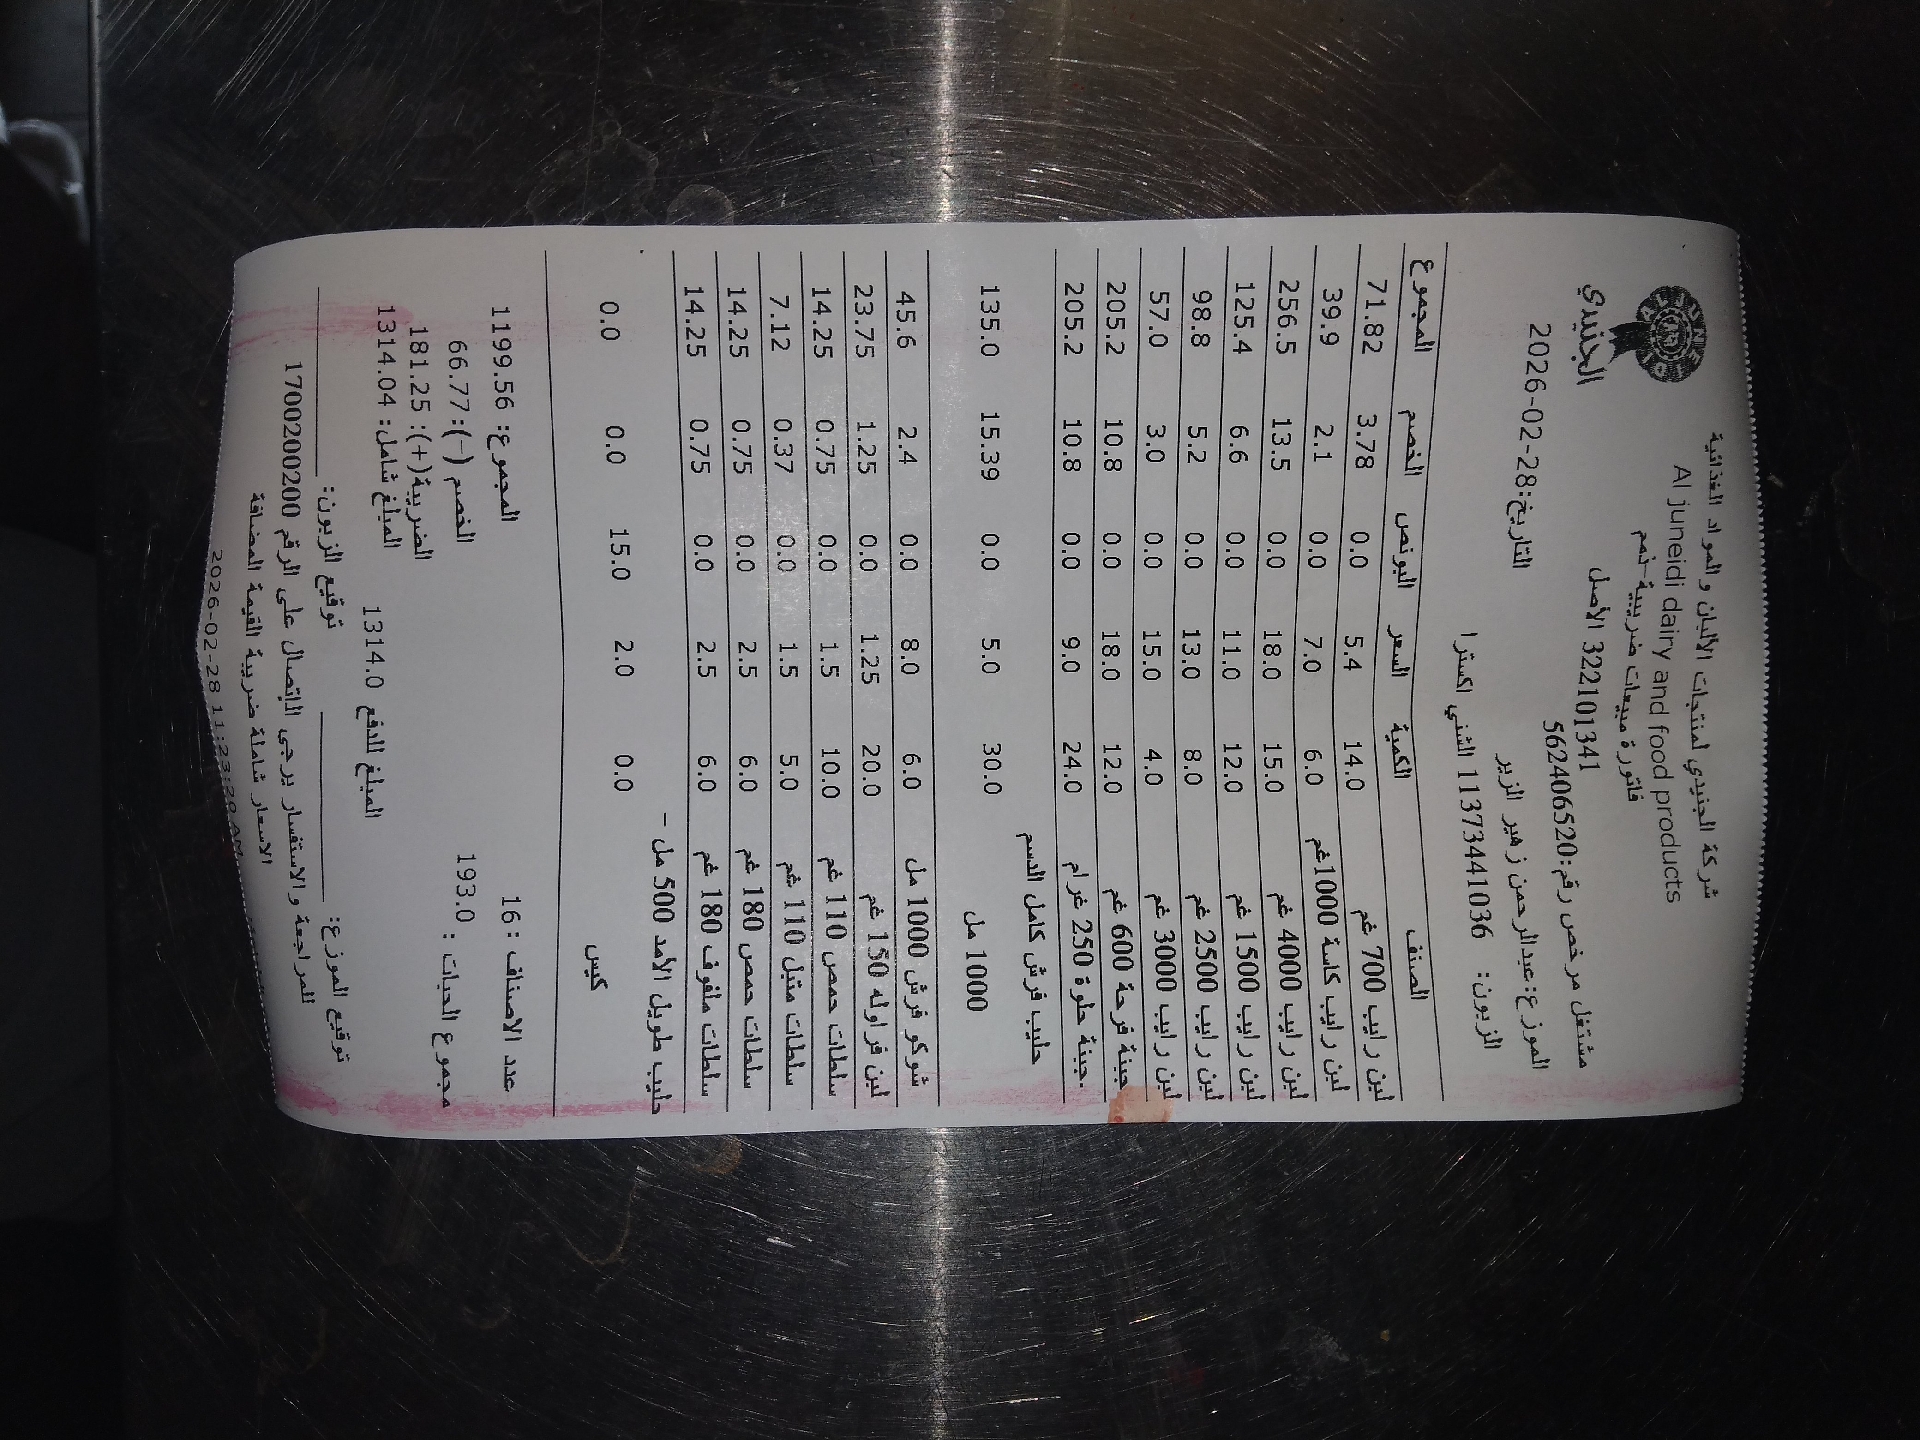 الجنيدي
شركة الجنيدي لمنتجات الألبان والمواد الغذائية
Al juneidi dairy and food products
فاتورة مبيعات ضريبية-ذمم
322101341 الأصل
مشتغل مرخص رقم:562406520
التاريخ:2026-02-28
الموزع:عبدالرحمن زهير الزير
الزبون: 1137344103​6 الشني اكسترا
الصنف الكمية السعر البونص الخصم المجموع
لبن رايب 700 غم 14.0 5.4 0.0 3.78 71.82
لبن رايب كاسة 1000غم 6.0 7.0 0.0 2.1 39.9
لبن رايب 4000 غم 15.0 18.0 0.0 13.5 256.5
لبن رايب 1500 غم 12.0 11.0 0.0 6.6 125.4
لبن رايب 2500 غم 8.0 13.0 0.0 5.2 98.8
لبن رايب 3000 غم 4.0 15.0 0.0 3.0 57.0
جبنة فرحة 600 غم 12.0 18.0 0.0 10.8 205.2
جبنة حلوة 250 غرام 24.0 9.0 0.0 10.8 205.2
حليب فرش كامل الدسم
1000 مل 30.0 5.0 0.0 15.39 135.0
شوكو فرش 1000 مل 6.0 8.0 0.0 2.4 45.6
لبن فراوله 150 غم 20.0 1.25 0.0 1.25 23.75
سلطات حمص 110 غم 10.0 1.5 0.0 0.75 14.25
سلطات متبل 110 غم 5.0 1.5 0.0 0.37 7.12
سلطات حمص 180 غم 6.0 2.5 0.0 0.75 14.25
سلطات ملفوف 180 غم 6.0 2.5 0.0 0.75 14.25
حليب طويل الأمد 500 مل -
كيس 0.0 2.0 15.0 0.0 0.0
عدد الاصناف : 16 المجموع: 1199.56
مجموع الحبات : 193.0 الخصم (-):66.77
الضريبة(+): 181.25
المبلغ شامل: 1314.04
المبلغ للدفع 1314.0
توقيع الموزع: توقيع الزبون:
للمراجعة والاستفسار يرجى الإتصال على الرقم 1700200200
الاسعار شاملة ضريبة القيمة المضافة
2026-02-28 11:23:20 AM